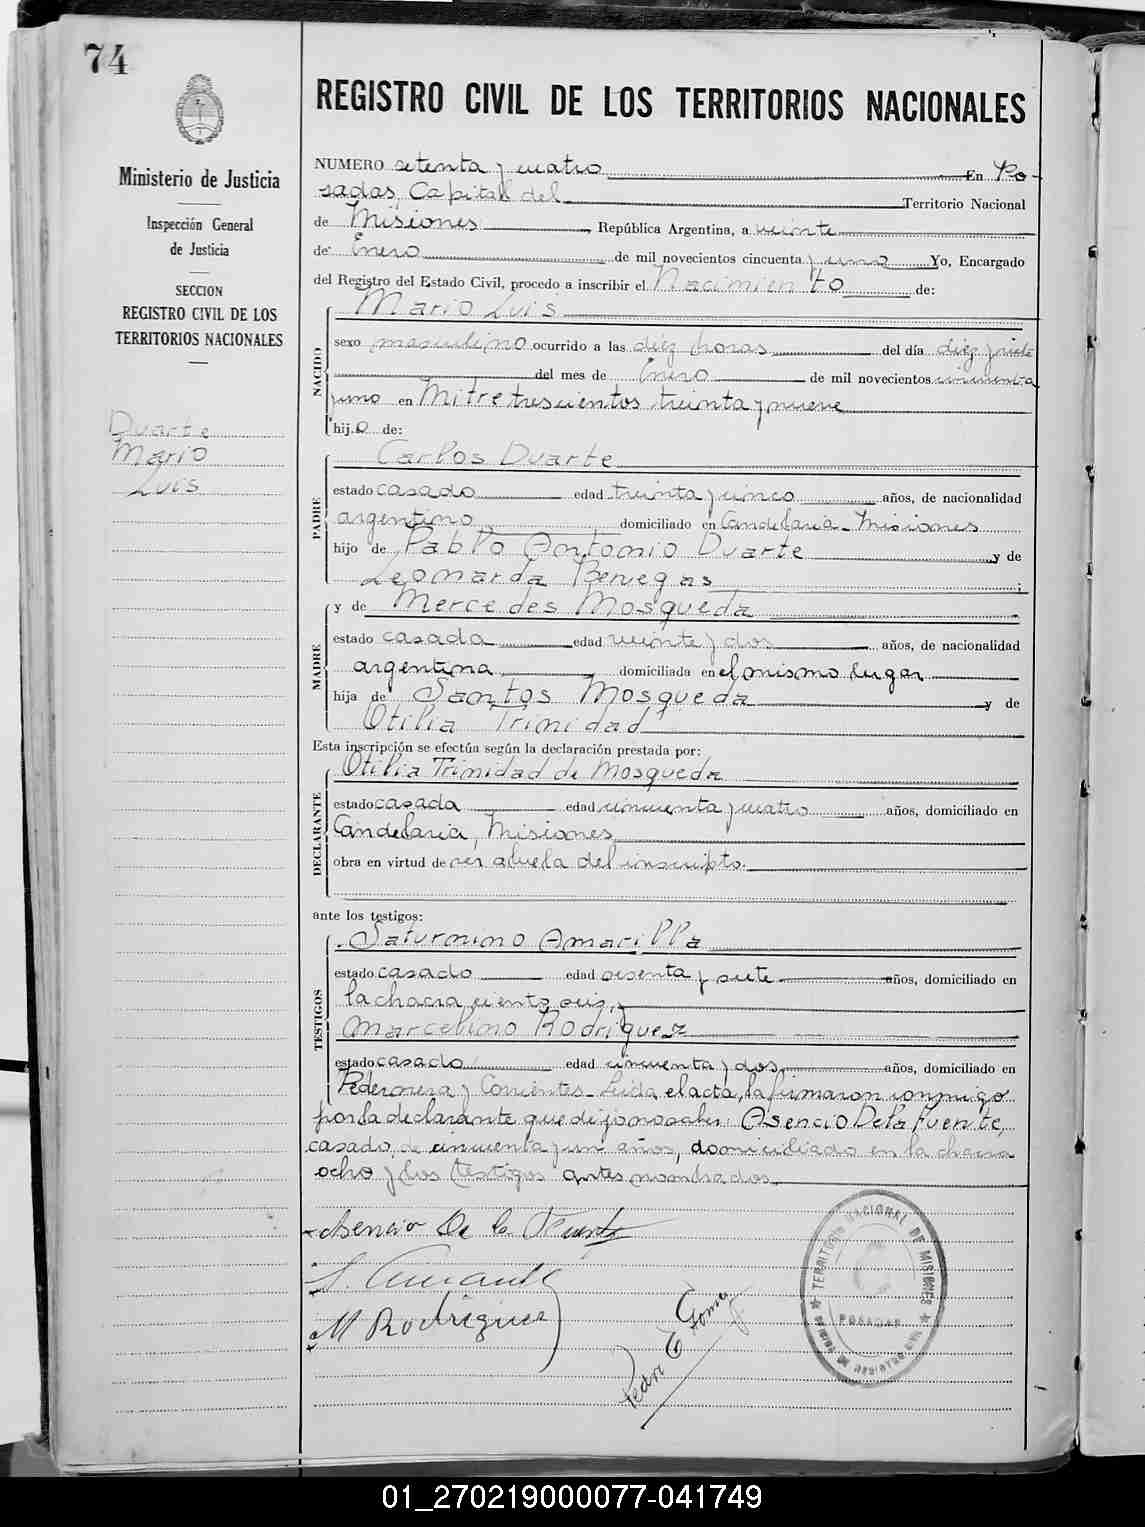 74
Ministerio de Justicia
Inspección General
de Justicia
SECCION
REGISTRO CIVIL DE LOS
TERRITORIOS NACIONALES
Duarte
Mario
Luis
REGISTRO CIVIL DE LOS TERRITORIOS NACIONALES
NUMERO setenta y cuatro En Po-
sadas, Capital del Territorio Nacional
de Misiones, República Argentina, a veinte
de Enero de mil novecientos cincuenta y uno Yo, Encargado
del Registro del Estado Civil, procedo a inscribir el Nacimiento de:
NACIDO
Mario Luis
sexo masculino ocurrido a las diez horas del día diez y siete
del mes de Enero de mil novecientos cincuenta
y uno en Mitre trescientos treinta y nueve
hijo de:
PADRE
Carlos Duarte
estado casado edad treinta y cinco años, de nacionalidad
argentino domiciliado en Candelaria - Misiones
hijo de Pablo Antonio Duarte y de
Leonarda Benegas ;
MADRE
y de Mercedes Mosqueda
estado casada edad veinte y dos años, de nacionalidad
argentina domiciliada en el mismo lugar
hija de Santos Mosqueda y de
Otilia Trinidad
Esta inscripción se efectúa según la declaración prestada por:
DECLARANTE
Otilia Trinidad de Mosqueda
estado casada edad cincuenta y cuatro años, domiciliado en
Candelaria, Misiones
obra en virtud de ser abuela del inscripto.
ante los testigos:
TESTIGOS
Saturnino Amarilla
estado casado edad sesenta y siete años, domiciliado en
la chacra ciento seis, y
Marcelino Rodriguez
estado casado edad cincuenta y dos, años, domiciliado en
Pedernera y Corrientes - Leida el acta, la firmaron conmigo
por la declarante que dijo no saber Asencio De la Fuente,
casado, de cincuenta y un años, domiciliado en la chacra
ocho y los testigos antes nombrados.
Asencio De la Fuente
M Rodriguez
Pedro E Gomez
TERRITORIO NACIONAL DE MISIONES
POSADAS
01_270219000077-041749